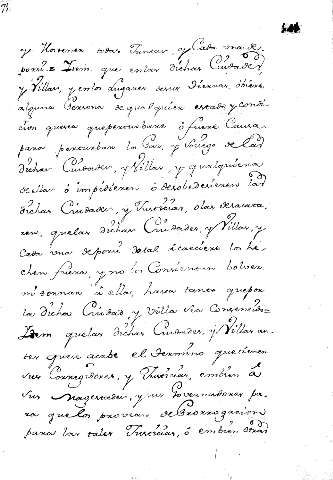 y Hacerse todas Juntas, y Cada una de
porsi = Item, que en las dichas Ciudades,
y Villas, y en los Lugares de sus tierras, obiere
alguna Persona de qualquier estado, y condi
cion que sea que perturbare ó fuere Causa
para perturbar la Paz, y Sosiego de las
dichas Ciudades, y Villas, y qualquiera
de ellas ó impidieren ó desobedecieren las
dichas Ciudades, y Justicias, ó las desacata
ren, que las dichas Ciudades, y Villas, y
Cada una de porsi do tal acaeciere los he
chen fuera, y no los Consientan bolver,
ni tornar á ella, hasta tanto que por
la dicha Ciudad, y Villa sea Consentido =
Item que las dichas Ciudades, y Villas an
tes que se acabe el termino que tienen
sus Corregidores, y Justicias, embien á
sus Magestades, y sus Governadores pa
ra que los provean de Prorrogacion
para las tales Justicias, ó embien otras